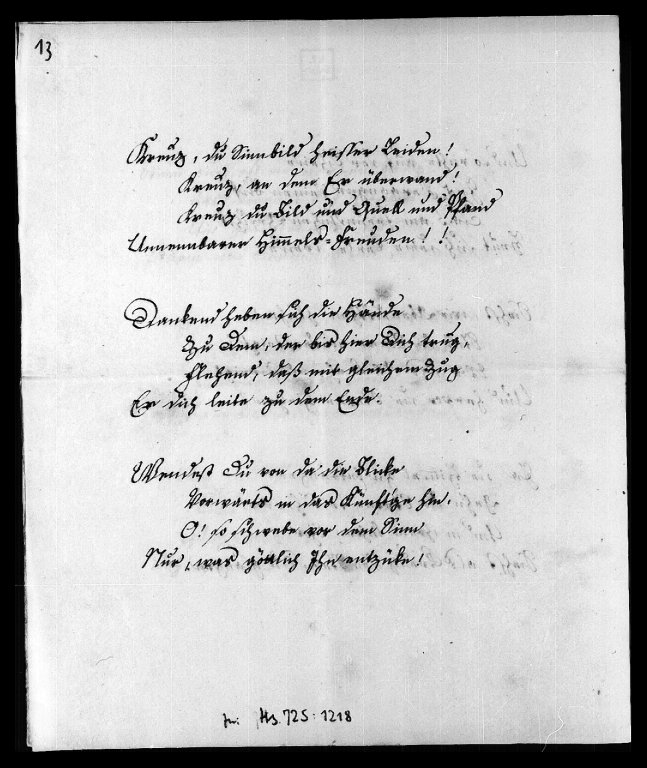 13
Kreuz, du Sinnbild heisser Leiden!
Kreuz, an dem Er überwand!
Kreuz du Bild und Quell und Pfand
Unnennbarer Himmels=Freuden!!
Dankend heben sich die Hände
Zu Dem, der bis hier Dich trug,
Flehend, daß mit gleichem Zug
Er dich leite zu dem Ende.
Wendest Du von da die Blicke
Vorwärts in das Künft'ge hin,
O! so schwebe vor dem Sinn
Nur, was göttlich Ihn entzüke!
Hs 725:1218